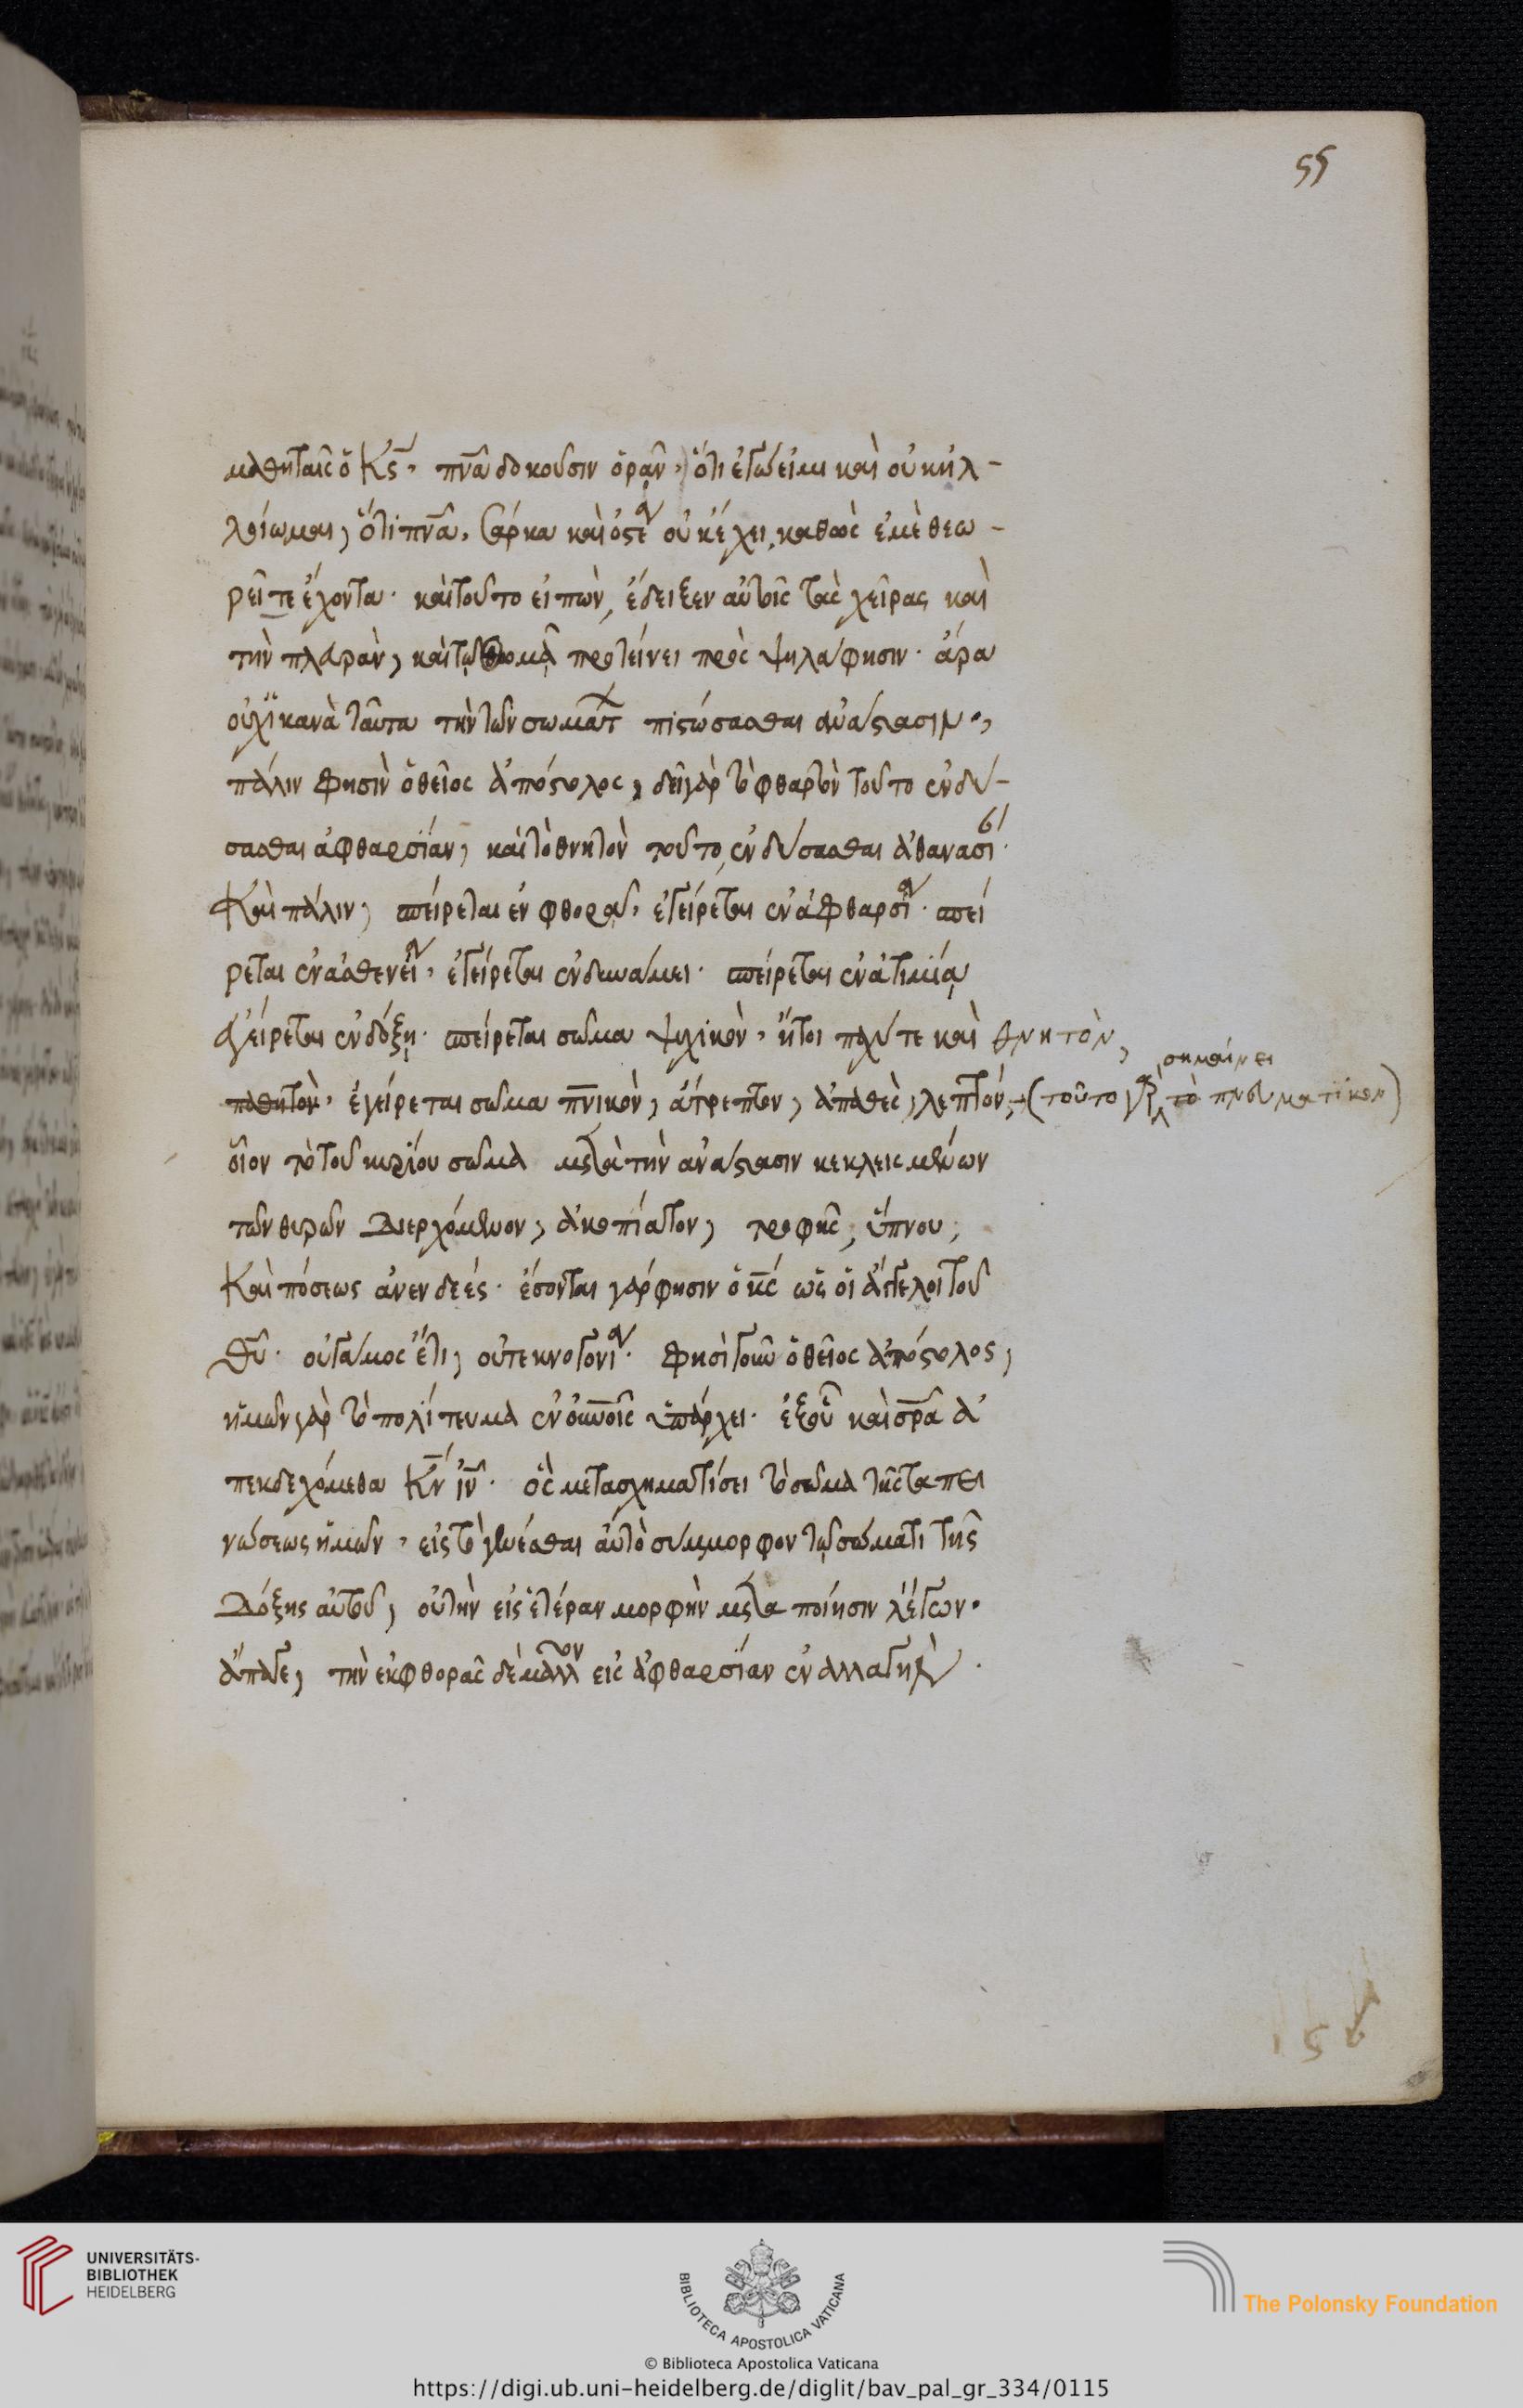 55
μαθηταῖς ὁ Κ̅ς̅, π̅ν̅α̅ δοκοῦσιν ὁρᾶν, ὅτι ἐγώ εἰμι καὶ οὐκ ἠλ-
λοίωμαι, ὅτι π̅ν̅α̅, σάρκα καὶ ὀστέα οὐκ ἔχει, καθὼς ἐμὲ θεω-
ρεῖτε ἔχοντα· καὶ τοῦτο εἰπὼν, ἔδειξεν αὐτοῖς τὰς χεῖρας καὶ
τὴν πλευρὰν, καὶ τῷ Θωμᾷ προτείνει πρὸς ψηλάφησιν· ἆρα
οὐχ ἱκανὰ ταῦτα τὴν τῶν σωμάτ πιστώσασθαι ἀνάστασιν·,
πάλιν φησὶν ὁ θεῖος ἀπόστολος, δεῖ γὰρ τὸ φθαρτὸν τοῦτο ἐνδύ-
σασθαι ἀφθαρσίαν, καὶ τὸ θνητὸν τοῦτο ἐνδύσασθαι ἀθανασί·
Καὶ πάλιν, σπείρεται ἐν φθορᾷ, ἐγείρεται ἐν ἀφθαρσίᾳ· σπεί
ρεται ἐν ἀσθενείᾳ, ἐγείρεται ἐν δυνάμει· σπείρεται ἐν ἀτιμίᾳ
ἐγείρεται ἐν δόξῃ· σπείρεται σῶμα ψυχικὸν, ἤτοι παχύ τε καὶ θνητὸν,
παθητὸν, ἐγείρεται σῶμα π̅ν̅ικὸν, ἄτρεπτον, ἀπαθὲς, λεπτόν, (τοῦτο γὰρ σημαίνει τὸ πνευματικον)
οἷον τὸ τοῦ κυρίου σῶμα μετὰ τὴν ἀνάστασιν κεκλεισμένων
τῶν θυρῶν διερχόμενον, ἀκοπίατον, τροφῆς, ὕπνου,
Καὶ πόσεως ἀνενδεές· ἔσονται γάρ φησιν ὁ κ̅ς̅ ὡς οἱ ἄγγελοι τοῦ
Θ̅υ̅· οὐ γάμος ἔτι, οὐ τεκνογονία· φησὶ γοῦν ὁ θεῖος ἀπόστολος,
ἡμῶν γὰρ τὸ πολίτευμα ἐν οὐ̅ν̅οῖς ὑπάρχει· ἐξ οὗ καὶ σ̅ρ̅α̅ ἀ
πεκδεχόμεθα Κ̅ν̅ ἰ̅ν̅· ὃς μετασχηματίσει τὸ σῶμα τῆς ταπει
νώσεως ἡμῶν, εἰς τὸ γενέσθαι αὐτὸ σύμμορφον τῷ σώματι τῆς
Δόξης αὐτοῦ, οὐ τὴν εἰς ἑτέραν μορφὴν μεταποίησιν λέγων·
ἄπαγε, τὴν ἐκ φθορᾶς δὲ μᾶλλον εἰς ἀφθαρσίαν ἐναλλαγὴν·
UNIVERSITÄTS-
BIBLIOTHEK
HEIDELBERG
BIBLIOTECA APOSTOLICA VATICANA
The Polonsky Foundation
© Biblioteca Apostolica Vaticana
https://digi.ub.uni-heidelberg.de/diglit/bav_pal_gr_334/0115